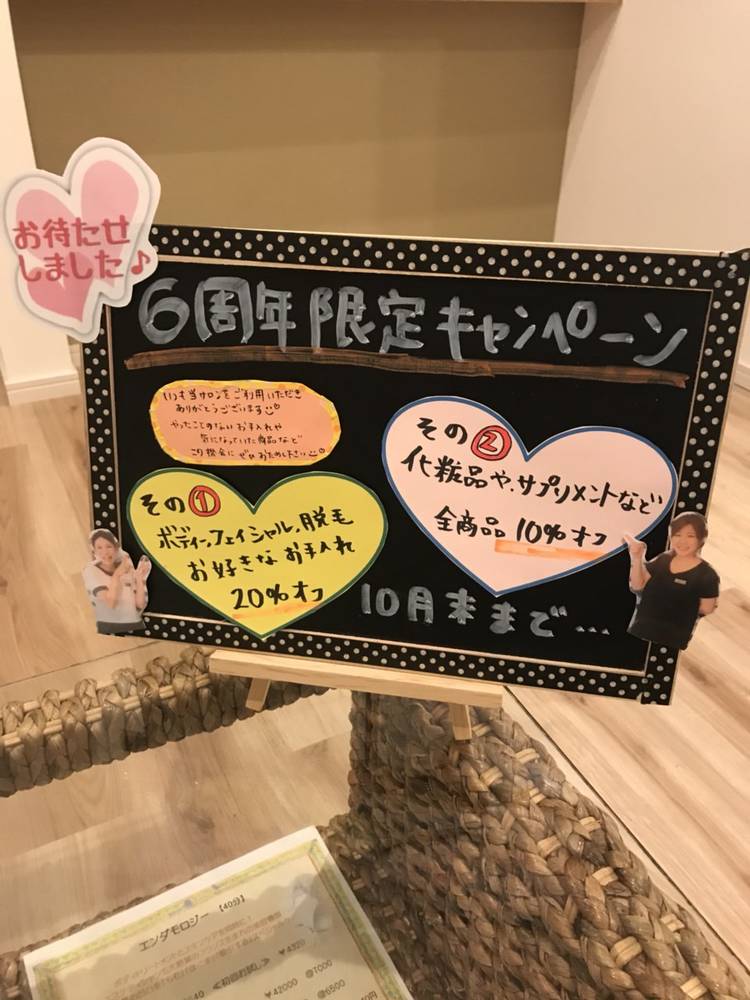 お待たせ
しました♪
6周年限定キャンペーン
いつも当サロンをご利用いただき
ありがとうございます
やったことのないお手入れや
気になっていた商品など
この機会にぜひおためし下さい
その①
ボディー、フェイシャル、脱毛
お好きなお手入れ
20%オフ
その②
化粧品や、サプリメントなど
全商品 10%オフ
10月末まで...
エンダモロジー 【40分】
≪初回お試し≫ ¥4320
¥42000 @7000
@6500